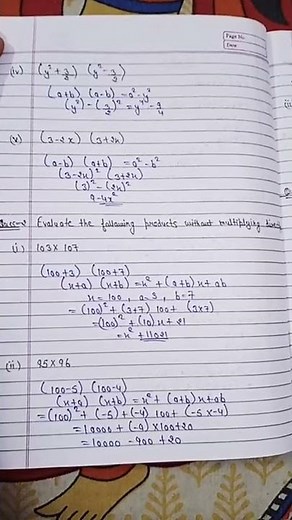 Page No.
Date
(iv) (y² + 3/2) (y² - 3/2)
(a+b) (a-b) = a² - y²
(y²) - (3/2)² = y⁴ - 9/4
(v) (3-2x) (3+2x)
(a-b) (a+b) = a² - b²
(3-2x)² (3+2x)
(3)² - (2x)²
9-4x²
Evaluate the following products without multiplying
(i) 103 X 107
(100+3) (100+7)
(x+a) (x+b) = x² + (a+b)x + ab
x = 100, a-3, b=7
= (100)² + (3+7) 100 + (3x7)
= (100)² + (10)x + 21
= x² + 11021
(ii) 95 X 96
(100-5) (100-4)
(x+a) (x+b) = x² + (a+b)x + ab
= (100)² + (-5) + (-4) 100 + (-5 x -4)
= 10000 + (-9) x 100 + 20
= 10000 - 900 + 20